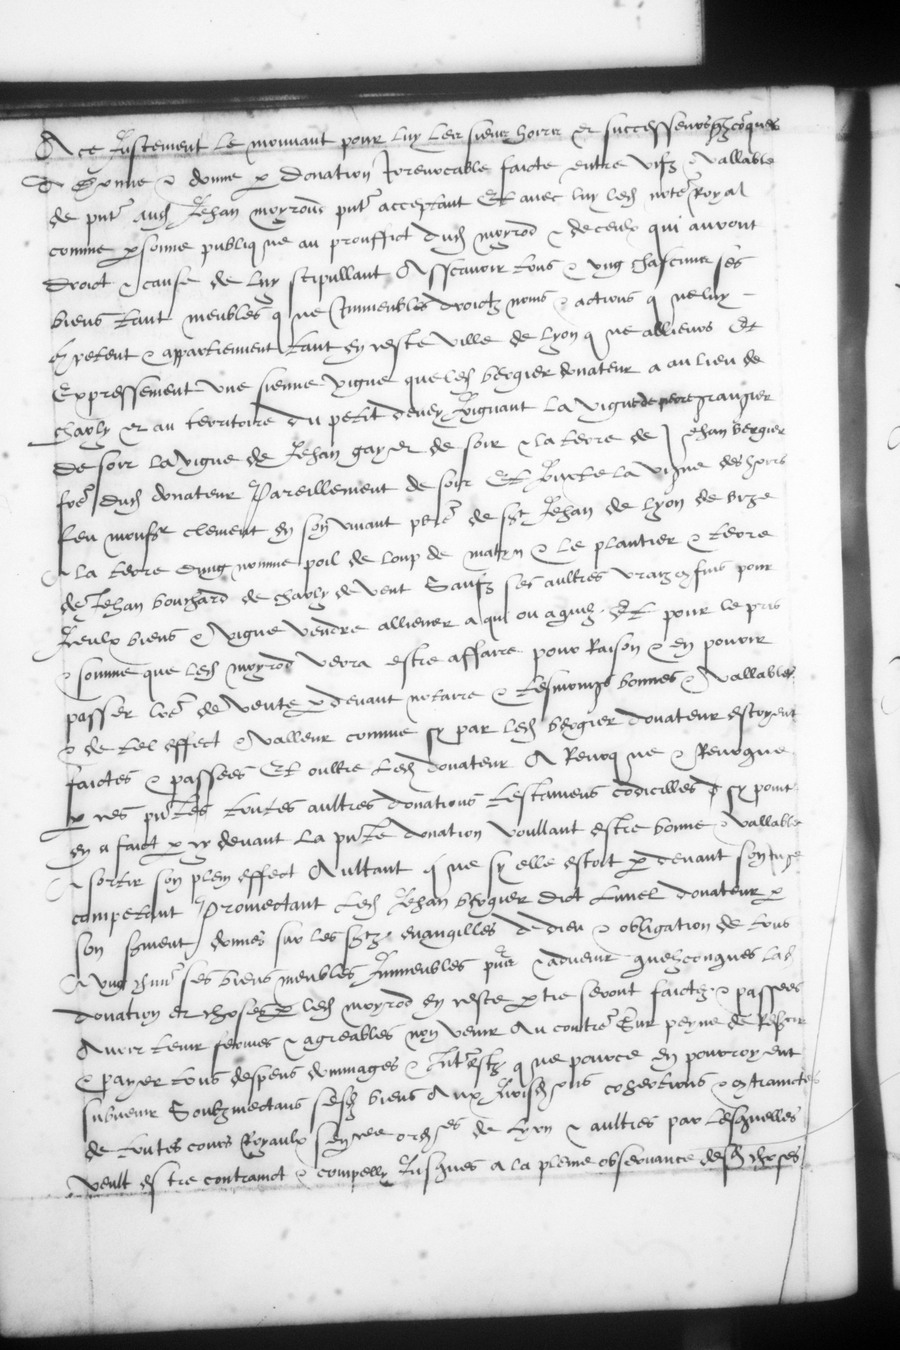 A ce Justement le mouvant pour luy les siens hoirs et successeurs quelzcoques
donne & donne p donation Irrevocable faicte entre vifz & vallable
de pnt Aud Jehan moyrod pnt acceptant Et avec luy led note Royal
comme psonne publiq ue au prouffict dud moyrod & de ceulx qui auront
droict & cause de luy stipullant Asscavoir tous & ung chascuns ses
biens tant meubles q ue Immeubles droictz noms & actions q ue luy
competent & appartiennent tant en ceste ville de lyon q ue allieurs Et
Expressement une sienne vigne que led bergier donateur a au lieu de
charly et au territoire du petit Joignant la vigne de pierre
de soir la vigne de Jehan gayet de soir & la terre de Jehan bergier
dud donateur Pareillement de soir Et Joixte la vigne des hoirs
feu monsr clement en son vivant pbre de sct Jehan de lyon de bize
& la terre dung nomme poil de loup de matin & le plantier & terre
de Jehan bouchard de charly de vent Saufz ses aultres vrays confins pour
Iceulx biens & vigne vendre alliener a qui ou a quilz Et pour le pris
& somme que led moyrod verra estre affaire pour Raison & en pouvoir
passer lres de vente p devant notaire & tesmoings bonnes & vallables
& de tel effect & valleur comme sy par led bergier donateur estoyent
faictes & passees Et oultre led donateur A Revoq ue & Revoque
p ces pntes toutes aultres donations testamens codicilles sy point
en a faict p cy devant la pnte donation voullant estre bonne & vallable
& sortir son plein effect Aultant q ue sy elle estoit p devant son juge
competant Promectant led Jehan bergier dict donateur p
son sment donnes sur les sctz evangilles de dieu & obligation de tous
& ung chun ses biens meubles Immeubles pns & advenir quelzconques lad
donation et choses p led moyrod en ceste ptie seront faictz & passees
Avoir tenir fermes & agreables non venir Au contre Sur peyne de
& payer tous despens dommages & Intestz q ue pource en pourroyent
subvenir Soubzmectans sesd biens Aux cohertions & contrainctes
de toutes cours Royaulx de lyon & aultres par lesquelles
veult estre contrainct & compelly Jusques a la pleine observance desd choses